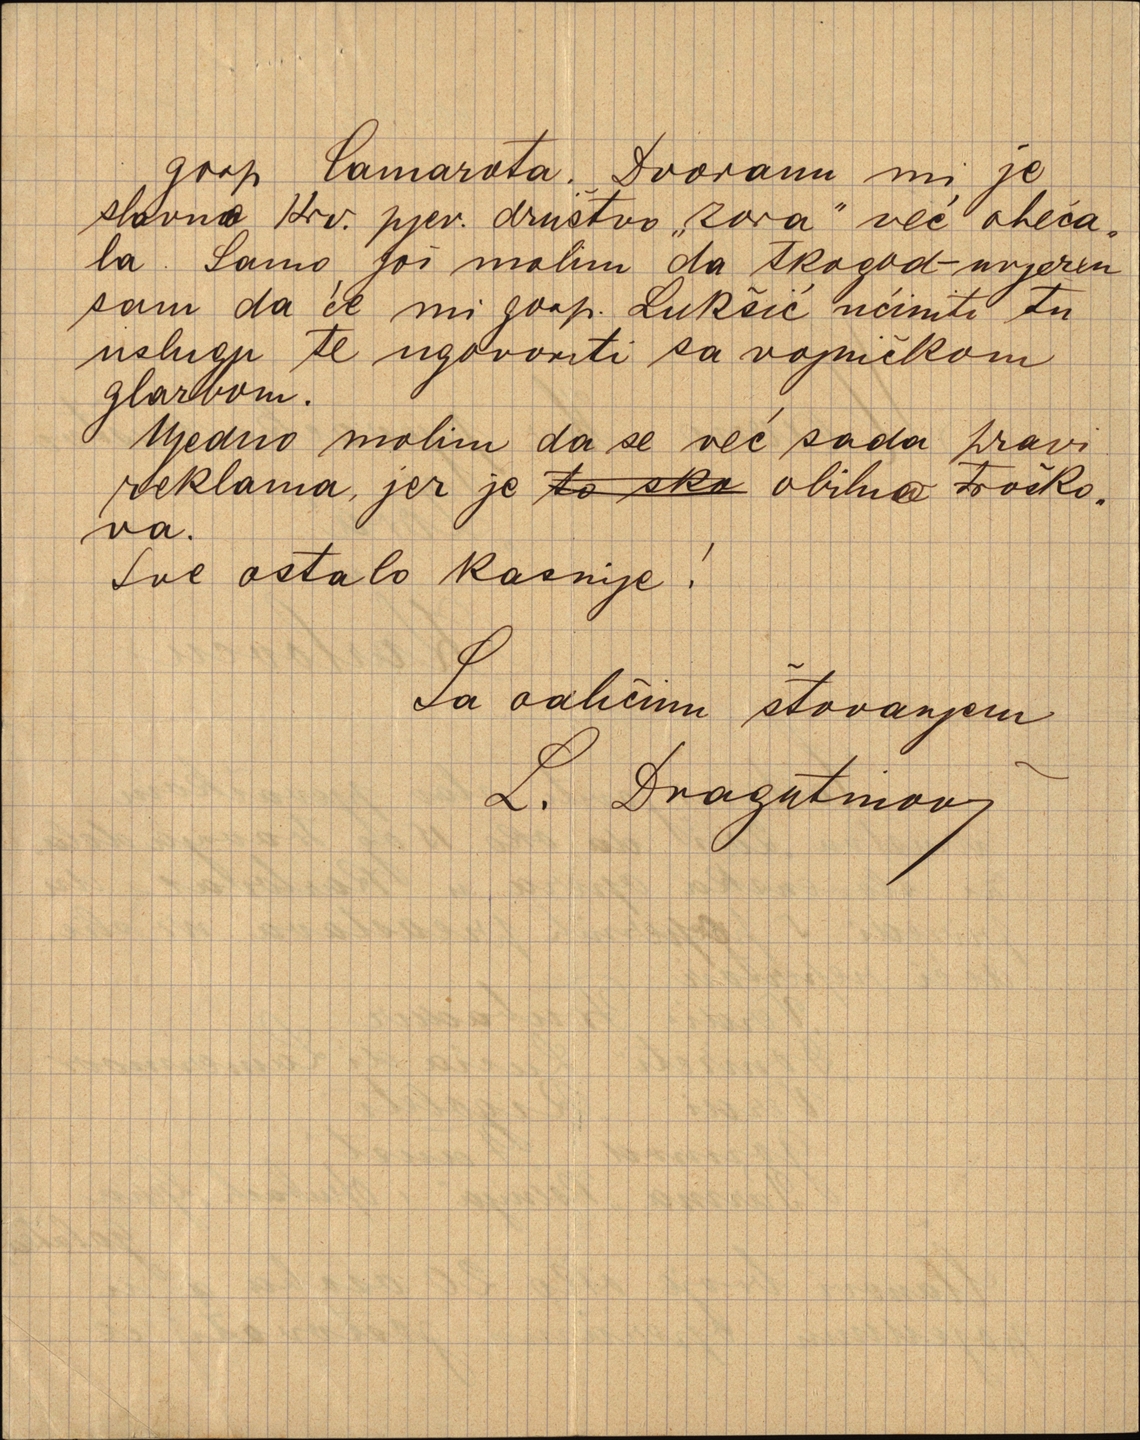 gosp Camarota. Dvoranu mi je
slavno Hrv. pjev. društvo „Zora" već obeća-
la. Samo još molim da tkogod - uvjeren
sam da će mi gosp. Lukšić učiniti tu
uslugu te ugovoriti sa vojničkom
glazbom.
Ujedno molim da se već sada pravi
reklama, jer je to sko obilno troško-
va.
Sve ostalo kasnije!
Sa odličnim štovanjem
L. Dragutinov